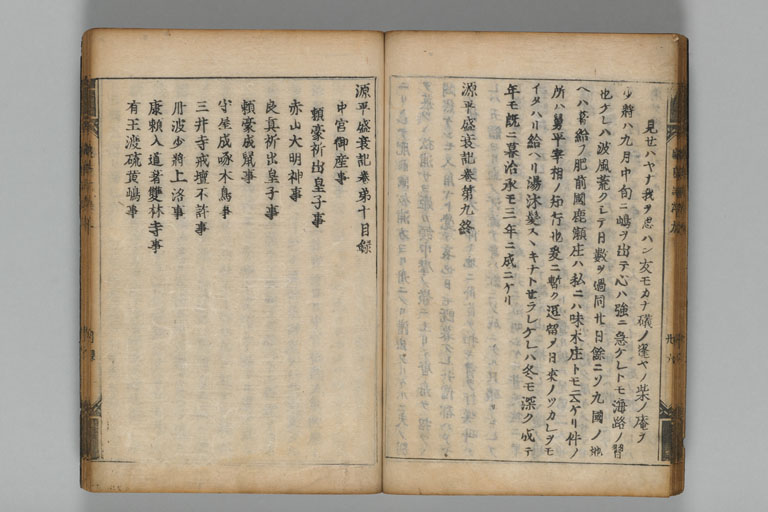 見セハヤナ我ヲ忍ハン友モカナ礒ノ蓬ヤノ柴ノ庵ヲ
少將ハ九月中旬ニ嶋ヲ出テ心ハ強ニ急ケレトモ海路ノ習
也ケレハ波風荒クシテ日數ヲ過同廿日餘ニソ九國ノ地
ヘハ着給フ肥前國鹿瀬庄ハ私ニハ味木庄トモ云ケリ件ノ
所ハ舅平宰相ノ知行也爰ニ暫ク逗留メ日來ノツカレヲモ
イタハリ給ヘリ湯沐髪スヽキナトセラレケレハ冬モ深ク成テ
年モ既ニ暮治承モ三年ニ成ニケリ
源平盛衰記卷第九終
源平盛衰記卷第十目錄
中宮御産事
賴豪祈出皇子事
赤山大明神事
良真祈出皇子事
賴豪成鼠事
守屋成啄木鳥事
三井寺戒壇不許事
丹波少將上洛事
康賴入道著雙林寺事
有王渡硫黄嶋事